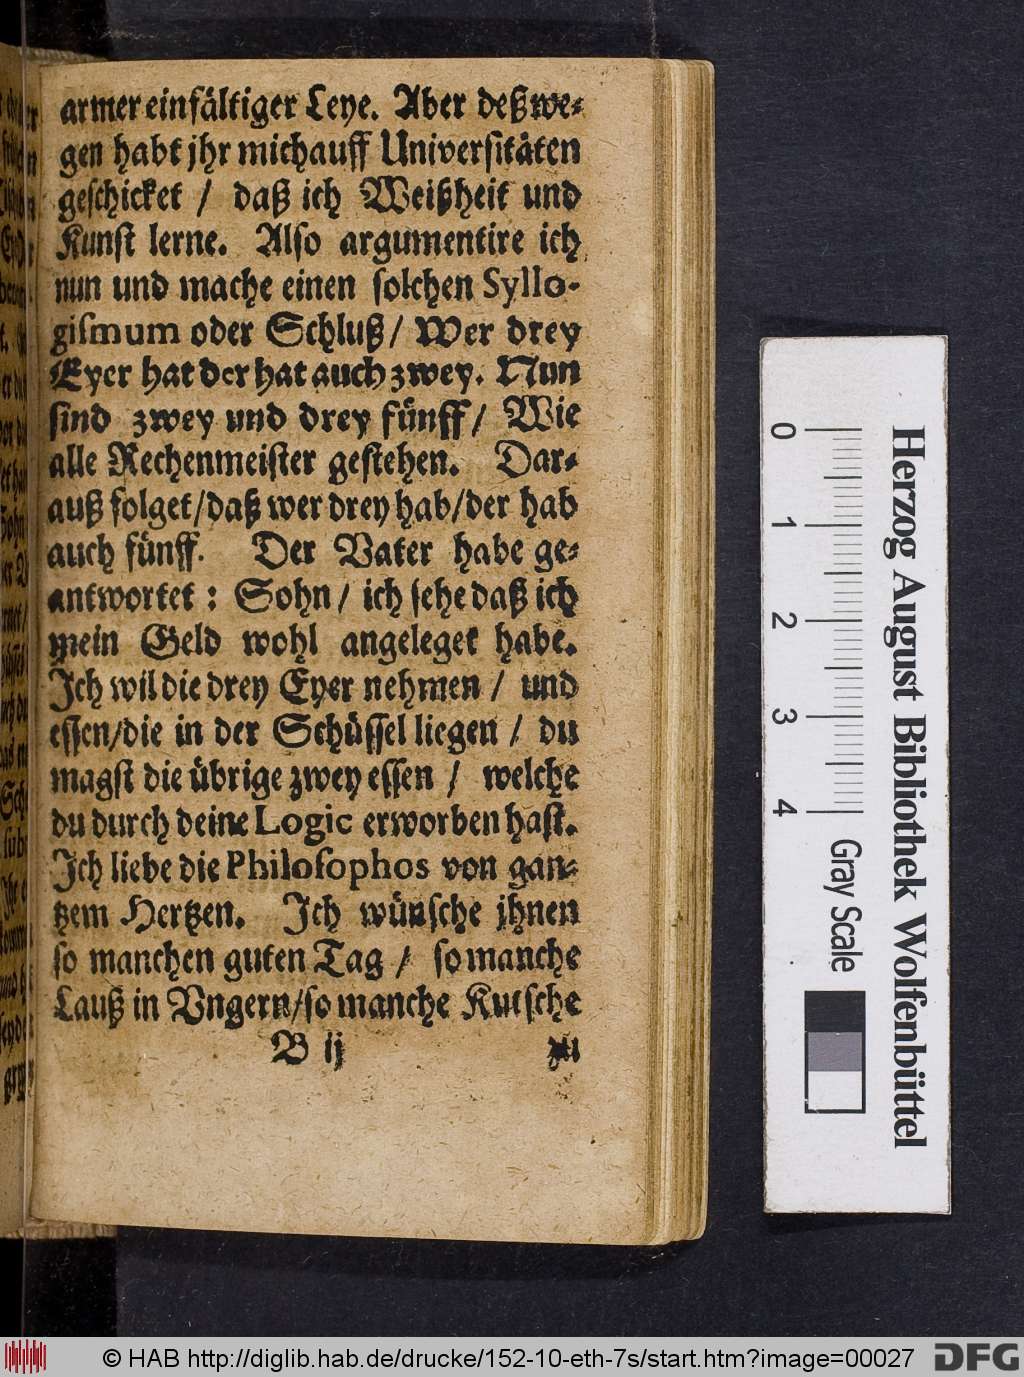 armer einfältiger Leye. Aber deßwe-
gen habt jhr mich auff Universitäten
geschicket / daß ich Weißheit und
Kunst lerne. Also argumentire ich
nun und mache einen solchen Syllo-
gismum oder Schluß / Wer drey
Eyer hat der hat auch zwey. Nun
sind zwey und drey fünff / Wie
alle Rechenmeister gestehen. Dar-
auß folget / daß wer drey hab / der hab
auch fünff. Der Vater habe ge-
antwortet : Sohn / ich sehe daß ich
mein Geld wohl angeleget habe.
Ich wil die drey Eyer nehmen / und
essen / die in der Schüssel liegen / du
magst die übrige zwey essen / welche
du durch deine Logic erworben hast.
Ich liebe die Philosophos von gan-
tzem Hertzen. Ich wünsche jhnen
so manchen guten Tag / so manche
Lauß in Vngern / so manche Kutsche
B ij zu
0 1 2 3 4
Gray Scale
Herzog August Bibliothek Wolfenbüttel
© HAB http://diglib.hab.de/drucke/152-10-eth-7s/start.htm?image=00027
DFG